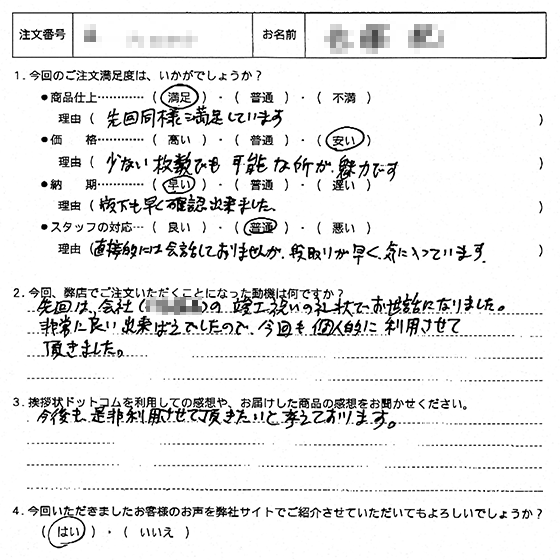 注文番号 お名前
1. 今回のご注文満足度は、いかがでしょうか？
●商品仕上………… （ 満足 ）・（ 普通 ）・（ 不満 ）
理由（ 先回同様満足しています ）
●価　格………… （ 高い ）・（ 普通 ）・（ 安い ）
理由（ 少ない枚数でも 可能な所が、魅力です ）
●納　期………… （ 早い ）・（ 普通 ）・（ 遅い ）
理由（ 版下も早く確認出来ました。 ）
●スタッフの対応… （ 良い ）・（ 普通 ）・（ 悪い ）
理由（ 直接的には会話しておりませんが、段取りが早く、気に入っています。 ）
2. 今回、弊店でご注文いただくことになった動機は何ですか？
先回は、会社（ ）の 竣工祝いの礼状でお世話になりました。
非常に良い出来ばえでしたので、今回も個人的に利用させて
頂きました。
3. 挨拶状ドットコムを利用しての感想や、お届けした商品の感想をお聞かせください。
今後も、是非利用させて頂きたいと考えております。
4. 今回いただきましたお客様のお声を弊社サイトでご紹介させていただいてもよろしいでしょうか？
（ はい ）・（ いいえ ）